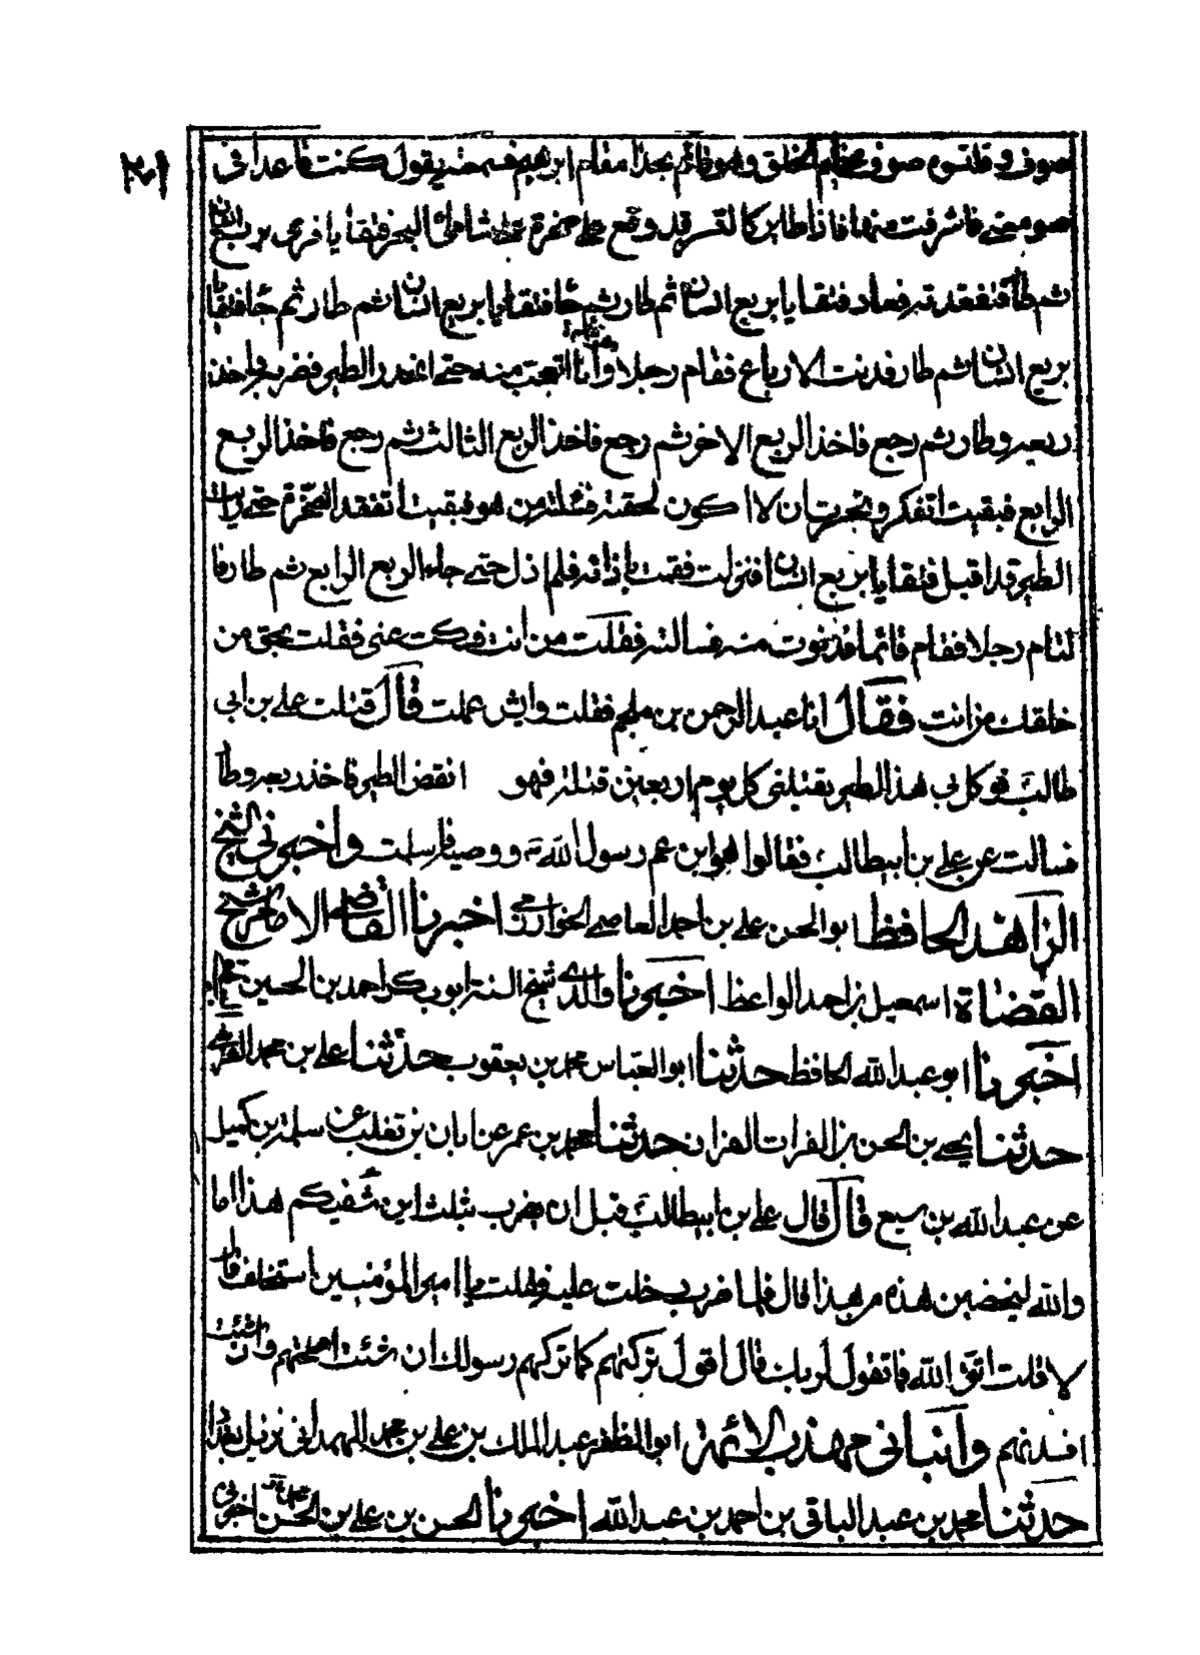 ٢٨١
صوف وقلنسوه صوف عظيم الخلق وهو قائم بحذا مقام ابرهيم فسمعته يقول كنت قاعدا في
صومعتي فاشرفت منها فاذا طاير كالنسر قد وقع على صخرة على شاطئ البحر فتقيا فرمى بربع انسان
ثم طار فتفقدته فعاد فتقيا بربع انسان ثم طار ثم جا فتقيا بربع انسان ثم طار ثم جا فتقيا
بربع انسان ثم طار فدنت الارباع فقام رجلا وانا اتعجب منه حتى انحدر الطير فضربه واخذ
ربعه وطار ثم رجع فاخذ الربع الاخر ثم رجع فاخذ الربع الثالث ثم رجع فاخذ الربع
الرابع فبقيت اتفكر وتحسرت ان لا اكون لحقته فسئلته من هو فبقيت اتفقد الصخرة حتى رايت
الطير قد اقبل فتقيا بربع انسان فنزلت فقمت بازائه فلم ازل حتى جاء الربع الرابع ثم طار فا
لتام رجلا فقام قائما فدنوت منه فسالته فقلت من انت فسكت عني فقلت بحق من
خلقك من انت فقال انا عبد الرحمن بن ملجم فقلت وايش عملت قال قتلت علي بن ابي
طالب فوكل بي هذا الطير يقتلني كل يوم اربعين قتلة فهو انقض الطير فاخذ ربعه وطا
فسالت عن علي بن ابيطالب فقالوا هو ابن عم رسول الله ووصيه فاسلمت واخبرني الشيخ
الزاهد الحافظ ابو الحسن علي بن احمد العاصمي الخوارزمي اخبرنا القاضي الامام شيخ
القضاة اسمعيل بن احمد الواعظ اخبرنا والدي شيخ السنة ابو بكر احمد بن الحسين
اخبرنا ابو عبد الله الحافظ حدثنا ابو العباس محمد بن يعقوب حدثنا علي بن محمد القرشي
حدثنا يحيى بن الحسن بن الفرات القزاز حدثنا محمد بن عمر عن ابان بن تغلب عن سلمة بن كهيل
عن عبد الله بن سبيع قال قال علي بن ابيطالب قبل ان يضرب بثلث اين شقيكم هذا اما
والله ليخضبن هذه من هذا قال فلما ضرب دخلت عليه فقلت يا امير المؤمنين استخلف قال
لا قلت اتق الله فما تقول لربك قال اقول تركتهم كما تركهم رسولك ان شئت اصلحتهم وان شئت
افسدتهم وانباني مهذب الائمة ابو المظفر عبد الملك بن علي بن محمد الهمداني نزيل بغداد
حدثنا محمد بن عبد الباقي بن احمد بن عبد الله اخبرنا الحسن بن علي بن الحسن اخبرني